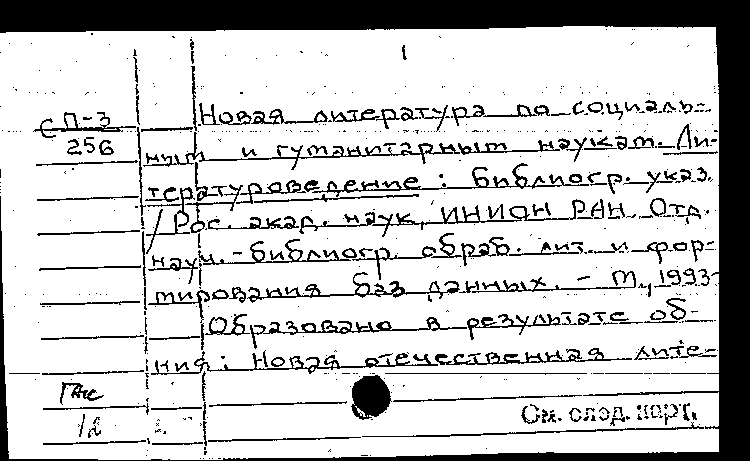 1
СП-3
256
Новая литература по социаль-
ным и гуманитарным наукам. Ли-
тературоведение : библиогр. указ.
/ Рос. акад. наук, ИНИОН РАН. Отд.
науч.-библиогр. обраб. лит. и фор-
мирования баз данных. - М., 1993-
Образовано в результате об-
ния: Новая отечественная лите-
12
См. след. карт.